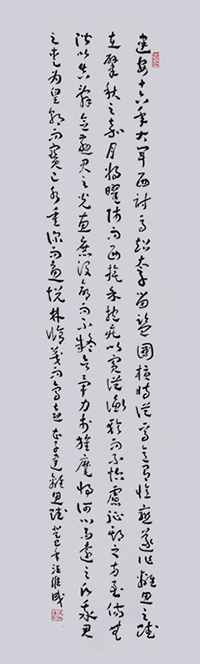 建安十六年大軍西討馬超太子留監國植時從焉意有憶戀遂作離思之賦
在肇秋之嘉月將曜師而西旗余抱疾以賓從扶衡軫而不怡慮征期之方至傷無
階以告辭念慈君之光惠庶沒命而不疑欲畢力於旌麾將何心而遠之願我君
之自愛為皇朝而寶己水重深而魚悅林脩茂而鳥喜 離思賦